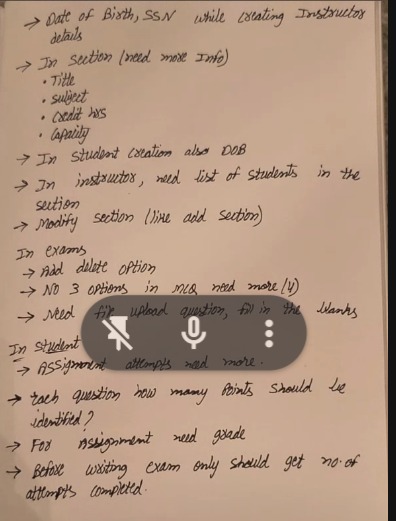 → Date of Birth, SSN while creating Instructor
details
→ In section (need more Info)
• Title
• subject
• credit hrs
• capacity
→ In student creation also DOB
→ In instructor, need list of students in the
section
→ Modify section (like add section)
In exams
→ Add delete option
→ NO 3 options in MCQ need more (4)
→ Need file upload question, fill in the blanks
In student
→ Assignment attempts need more.
→ Each question how many points should be
identified?
→ For Assignment need grade
→ Before writing exam only should get no. of
attempts completed.